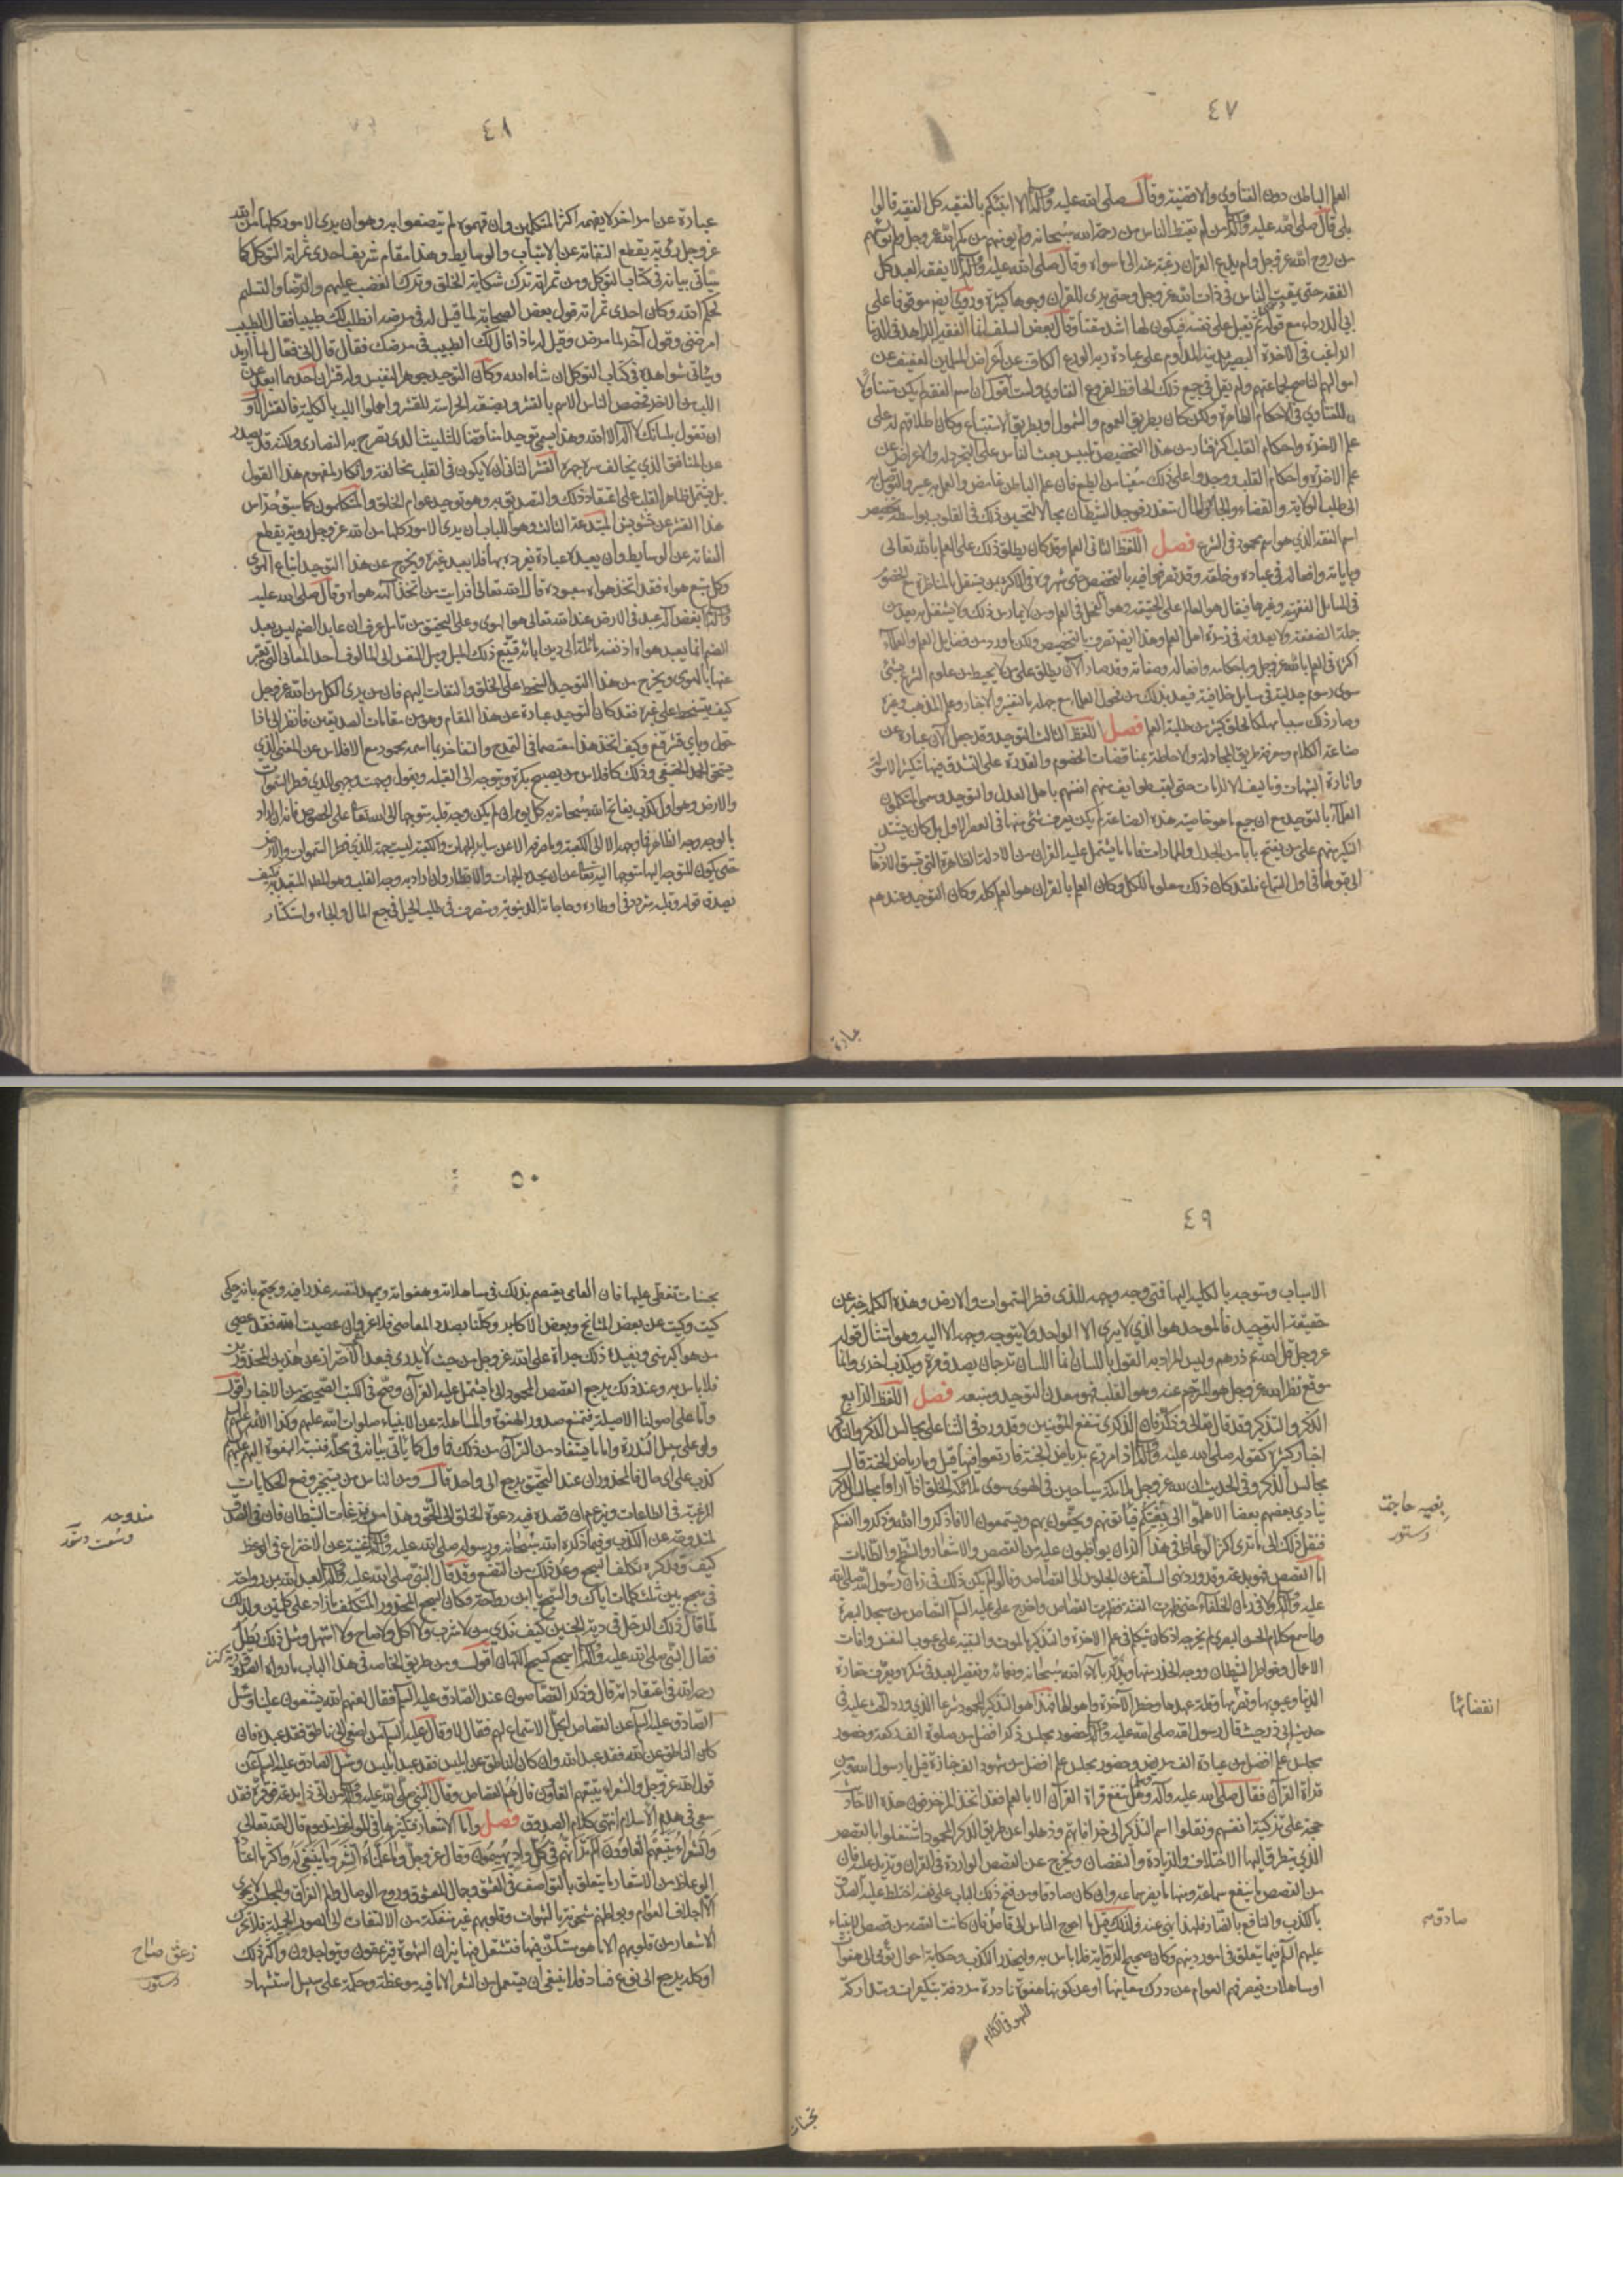 ٤٧
العلم الباطن دون الفتاوى والاقضية وقال صلى الله عليه وآله الا انبئكم بالفقيه كل الفقيه قالوا
بلى قال صلى الله عليه وآله من لم يقنط الناس من رحمة الله سبحانه ولم يؤمنهم من مكر الله عز وجل ولم يؤيسهم
من روح الله عز وجل ولم يدع القرآن رغبة عنه الى ما سواه وقال صلى الله عليه وآله لا يفقه العبد كل
الفقه حتى يمقت الناس في ذات الله عز وجل وحتى يرى للقرآن وجوها كثيرة وروى ايضا موقوفا على
ابي الدرداء مع قوله ثم يقبل على نفسه فيكون لها اشد مقتا وقال بعض السلف انما الفقيه الزاهد في الدنيا
الراغب في الآخرة البصير بدينه المداوم على عبادة ربه الورع الكاف عن اعراض المسلمين العفيف عن
اموالهم الناصح لجماعتهم ولم يقل في جميع ذلك الحافظ لفروع الفتاوى ولست اقول ان اسم الفقه لم يكن متناولا
للفتاوى في الاحكام الظاهرة ولكن كان بطريق العموم والشمول او بطريق الاستتباع وكان اطلاقهم له على
علم الآخرة واحكام القلب اكثر فثار من هذا التخصيص تلبيس بعث الناس على التجرد له والاعراض عن
علم الآخرة واحكام القلب ووجدوا على ذلك معينا من الطبع فان علم الباطن غامض والعمل به عسير والتوصل به
الى طلب الولاية والقضاء والجاه والمال متعذر فوجد الشيطان مجالا لتحسين ذلك في القلوب بواسطة تخصيص
اسم الفقه الذي هو اسم محمود في الشرع فصل اللفظ الثاني العلم وقد كان يطلق ذلك على العلم بالله تعالى
وباياته وافعاله في عباده وخلقه وقد تصرفوا فيه بالتخصيص حتى شهروه في الاكثر بمن يشتغل بالمناظرة مع الخصوم
في المسائل الفقهية وغيرها فيقال هو العالم على الحقيقة وهو الفحل في العلم ومن لا يمارس ذلك ولا يشتغل به يعد من
جملة الضعفة ولا يعدونه في زمرة اهل العلم وهذا ايضا تصرف بالتخصيص ولكن ما ورد من فضايل العلم والعلماء
اكثره في العلم بالله عز وجل وباحكامه وافعاله وصفاته وقد صار الآن يطلق على من لا يحيط من علوم الشرع بشئ
سوى رسوم جدلية في مسايل خلافية فيعد بذلك من فحول العلماء مع جهله بالتفسير والاخبار وعلم المذهب وغيره
وصار ذلك سببا مهلكا لخلق كثير من طلبة العلم فصل اللفظ الثالث التوحيد وقد جعل الآن عبارة عن
صناعة الكلام ومعرفة طريق المجادلة والاحاطة بمناقضات الخصوم والقدرة على التشدق فيها بتكثير الاسولة
واثارة الشبهات وتاليف الالزامات حتى لقب طوايف منهم انفسهم باهل العدل والتوحيد وسمى المتكلمون
العلماء بالتوحيد مع ان جميع ما هو خاصية هذه الصناعة لم يكن يعرف شئ منها في العصر الاول بل كان يشتد
النكير منهم على من يفتح بابا من الجدل والمماراة فاما ما يشتمل عليه القرآن من الادلة الظاهرة التي تسبق الاذهان
الى قبولها في اول السماع فلقد كان ذلك معلوما للكل وكان العلم بالقرآن هو العلم كله وكان التوحيد عندهم
عبارة
٤٨
عبارة عن امر آخر لا يفهمه اكثر المتكلمين وان فهموه لم يتصفوا به وهو ان يرى الامور كلها من الله
عز وجل رؤية يقطع التفاته عن الاسباب والوسايط وهذا مقام شريف احدى ثمراته التوكل كما
سيأتي بيانه في كتاب التوكل ومن ثمراته ترك شكاية الخلق وترك الغضب عليهم والرضا والتسليم
لحكم الله وكان احدى ثمراته قول بعض الصحابة لما قيل له في مرضه انطلب لك طبيبا فقال الطبيب
امرضني وقول آخر لما مرض وقيل له ماذا قال لك الطبيب في مرضك فقال قال اني فعال لما اريد
وسيأتي شواهده في كتاب التوكل ان شاء الله وكان التوحيد جوهر النفيس وله قشران احدهما ابعد عن
اللب من الآخر فخصص الناس الاسم بالقشر وبصنعة الحراسة للقشر واهملوا اللب بالكلية فالقشر الاول
ان تقول بلسانك لا اله الا الله وهذا يسمى توحيدا مناقضا للتثليث الذي يصرح به النصارى ولكنه قد يصدر
عن المنافق الذي يخالف سره جهره القشر الثاني ان لا يكون في القلب مخالفة وانكار لمفهوم هذا القول
بل يشتمل ظاهر القلب على اعتقاد ذلك والتصديق به وهو توحيد عوام الخلق والمتكلمون كما سبق حراس
هذا القشر عن تشويش المبتدعة الثالث وهو اللباب ان يرى الامور كلها من الله عز وجل رؤية يقطع
التفاته عن الوسايط وان يعبده عبادة يفرده بها فلا يعبد غيره ويخرج عن هذا التوحيد اتباع الهوى
وكل متبع هواه فقد اتخذ هواه معبوده قال الله تعالى افرايت من اتخذ الهه هواه وقال صلى الله عليه
وآله ابغض اله عبد في الارض عند الله تعالى هو الهوى وعلى التحقيق من تامل عرف ان عابد الصنم ليس يعبد
الصنم انما يعبد هواه اذ نفسه مائلة الى دين آبائه فيتبع ذلك الميل وميل النفس الى المألوف احد المعاني التي يعبر
عنها بالهوى ويخرج من هذا التوحيد السخط على الخلق والتفات اليهم فان من يرى الكل من الله عز وجل
كيف يتسخط على غيره فقد كان التوحيد عبارة عن هذا المقام وهو من مقامات الصديقين فانظر الى ماذا
حول وباي قشر قنع وكيف اتخذ هذا معتصما في التمدح والتفاخر بما اسمه محمود مع الافلاس عن المعنى الذي
يستحق الحمد الحقيقي وذلك كافلاس من يصبح بكرة ويتوجه الى القبلة ويقول وجهت وجهي للذي فطر السموات
والارض وهو اول كذب يفاتح الله سبحانه به كل يوم ان لم يكن وجه قلبه متوجها الى الله تعالى على الخصوص فانه ان اراد
بالوجه وجه الظاهر فما وجهه الا الى الكعبة وما صرفه الا عن ساير الجهات والكعبة ليست جهة للذي فطر السموات والارض
حتى يكون المتوجه اليها متوجها اليه تعالى عن ان يحده الجهات والاقطار وان اراد به وجه القلب وهو المطلوب المتعبد به فكيف
يصدق قوله وقلبه متردد في اوطاره وحاجاته الدنيوية ومتصرف في طلب الحيل في جمع المال والجاه واستكثار
٤٩
الاسباب ومتوجه بالكلية اليها فمتى وجه وجهه للذي فطر السموات والارض وهذه الكلمة خبر عن
حقيقة التوحيد فالموحد هو الذي لا يرى الا الواحد ولا يتوجه وجهه الا اليه وهو امتثال قوله
عز وجل قل الله ثم ذرهم وليس المراد به القول باللسان انما اللسان ترجمان يصدق مرة ويكذب اخرى وانما
موقع نظر الله عز وجل هو المترجم عنه وهو القلب فهو معدن التوحيد ومنبعه فصل اللفظ الرابع
الذكر والتذكير وقد قال تعالى وذكر فان الذكرى تنفع المؤمنين وقد ورد في الثناء على مجالس الذكر والتذكير
اخبار كثيرة كقوله صلى الله عليه وآله اذا مررتم برياض الجنة فارتعوا فيها قيل وما رياض الجنة قال
مجالس الذكر وفي الحديث ان لله عز وجل ملائكة سياحين في الهوى سوى ملائكة الخلق اذا راوا مجالس الذكر
ينادي بعضهم بعضا الا هلموا الى بغيتكم فيأتونهم ويحفون بهم ويستمعون الا فاذكروا الله وذكروا انفسكم
فنقل ذلك الى ما ترى اكثر الوعاظ في هذا الزمان يواظبون عليه من القصص والاشعار والشطح والطامات
اما القصص فهو بدعة وقد ورد نهي السلف عن الجلوس الى القصاص وقالوا لم يكن ذلك في زمان رسول الله صلى الله
عليه وآله ولا في زمان الخلفاء حتى ظهرت الفتنة فظهرت القصاص واخرج علي عليه السلام القصاص من مسجد البصرة
ولما سمع كلام الحسن البصري لم يخرجه اذ كان يتكلم في علم الآخرة والتذكير بالموت والتنبيه على عيوب النفس وافات
الاعمال وخواطر الشيطان ووجه الحذر منها ويذكر بآلاء الله سبحانه ونعمائه وتقصير العبد في شكره ويعرف حقارة
الدنيا وعيوبها وتصرمها وقلة عهدها وخطر الآخرة واهوالها فهذا هو التذكير المحمود شرعا الذي ورد الحث عليه في
حديث ابي ذر حيث قال رسول الله صلى الله عليه وآله حضور مجلس ذكر افضل من صلوة الف ركعة وحضور
مجلس علم افضل من عيادة الف مريض وحضور مجلس علم افضل من شهود الف جنازة قيل يا رسول الله ومن
قراءة القرآن فقال صلى الله عليه وآله وهل تنفع قراءة القرآن الا بالعلم فقد اتخذ المزخرفون هذه الاحاديث
حجة على تزكية انفسهم ونقلوا اسم التذكير الى خرافاتهم وذهلوا عن طريق الذكر المحمود واشتغلوا بالقصص
الذي يتطرق اليها الاختلاف والزيادة والنقصان ويخرج عن القصص الواردة في القرآن ويزيد عليه فان
من القصص ما ينفع سماعه ومنها ما يضر سماعه وان كان صادقا ومن فتح ذلك الباب على نفسه اختلط عليه الصدق
بالكذب والنافع بالضار فلهذا نهي عنه ولذلك قيل ما احوج الناس الى قاص فان كانت القصة من قصص الانبياء
عليهم السلم فيما يتعلق في امور دينهم وكان صحيح الرواية فلا باس به وليحذر الكذب وحكاية احوال تومى الى هفوات
او مساهلات يقصر فهم العوام عن درك معانيها او عن كونها هفوة نادرة مردفة بتكفيرات ومتداركة
بغيه حاجت
دستور
انقضائها
صادق صه
بحسنات
٥٠
بحسنات تغطي عليها فان العامي يعتصم بذلك في مساهلاته وهفواته ويمهد لنفسه عذرا فيه ويحتج بانه حكي
كيت وكيت عن بعض المشايخ وبعض الاكابر وكلنا بصدد المعاصي فلا غرو ان عصيت الله فقد عصى
من هو اكبر مني ويفيده ذلك جراة على الله عز وجل من حيث لا يدري فبعد الاحتراز عن هذين المحذورين
فلا باس به وعند ذلك يرجع القصص المحمودة الى ما يشتمل عليه القرآن وصح في الكتب الصحيحة من الاخبار اقول
واما على اصولنا الاصيلة فيمتنع صدور الهفوة والمساهلة عن الانبياء صلوات الله عليهم وكذا الائمة عليهم السلم
ولو على سبيل الندرة واما ما يستفاد من القرآن من ذلك فماول كما ياتي بيانه في محله فنسبة الهفوة اليهم عليهم السلم
كذب على اي حال فالمحذوران عند التحقيق يرجع الى واحد قال ومن الناس من يستجيز وضع الحكايات
المرغبة في الطاعات ويزعم ان قصده فيه دعوة الخلق الى الحق وهذا من نزغات الشيطان فان في الصدق
لمندوحة عن الكذب وفيما ذكره الله سبحانه ورسوله صلى الله عليه وآله غنية عن الاختراع في الوعظ
كيف وقد كره تكلف السجع وعد ذلك من التصنع وقد قال النبي صلى الله عليه وآله لعبد الله بن رواحة
في سجع بين ثلث كلمات اياك والسجع يا ابن رواحة وكان السجع المحذور المتكلف ما زاد على كلمتين ولذلك
لما قال ذلك الرجل في دية الجنين كيف ندي من لا شرب ولا اكل ولا صاح ولا استهل ومثل ذلك يطل
فقال النبي صلى الله عليه وآله اسجع كسجع الكهان اقول ومن طريق الخاصة في هذا الباب ما رواه الصدوق
رحمه الله في اعتقاداته قال وذكر القصاصون عند الصادق عليه السلم فقال لعنهم الله يشنعون علينا وسئل
الصادق عليه السلم عن القصاص ايحل الاستماع لهم فقال لا وقال عليه السلم من اصغى الى ناطق فقد عبده فان
كان الناطق عن الله فقد عبد الله وان كان الناطق عن ابليس فقد عبد ابليس وسئل الصادق عليه السلم عن
قول الله عز وجل والشعراء يتبعهم الغاوون قال هم القصاص وقال النبي صلى الله عليه وآله من اتى ذا بدعة فوقره فقد
سعى في هدم الاسلام انتهى كلام الصدوق فصل واما الاشعار فتكثيرها في المواعظ مذموم قال الله تعالى
والشعراء يتبعهم الغاوون الم تر انهم في كل واد يهيمون وقال عز وجل وما علمناه الشعر وما ينبغي له واكثر ما اعتاد
الوعاظ من الاشعار ما يتعلق بالتواصف في العشق وجمال المعشوق وروح الوصال والم الفراق والمجلس لا يحوي
الا اجلاف العوام وبواطنهم مشحونة بالشهوات وقلوبهم غير منفكة من الالتفات الى الصور الجميلة فلا تحرك
الاشعار من قلوبهم الا ما هو مستكن فيها فتشتعل فيها نيران الشهوة فيزعقون ويتواجدون واكثر ذلك
او كله يرجع الى نوع فساد فلا ينبغي ان يستعمل من الشعر الا ما فيه موعظة وحكمة على سبيل استشهاد
مندوحه
وسعت دستور
زعق صاح
دستور